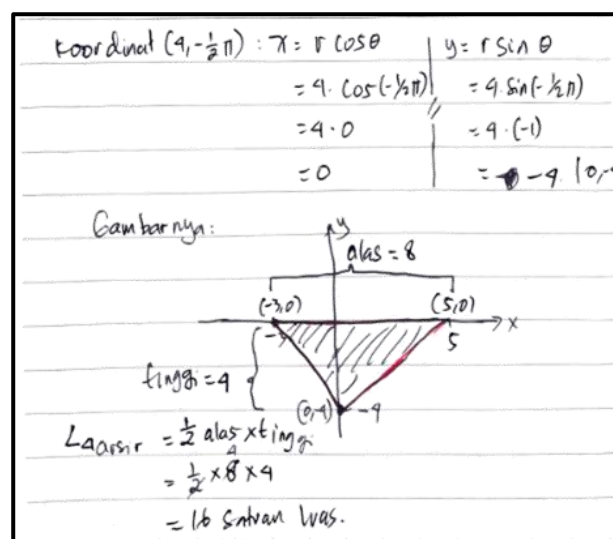 koordinat (4, -½π) : x = r cos θ | y = r sin θ
= 4. cos (-½π) | = 4. sin (-½π)
= 4 · 0 // = 4 · (-1)
= 0 | = -4. (0,-
Gambarnya:
y
alas = 8
(-3,0) (5,0)
x
-3 5
tinggi = 4
(0,-4) -4
L∆arsir = ½ alas x tinggi
4
= ½ x 8 x 4
= 16 satuan luas.